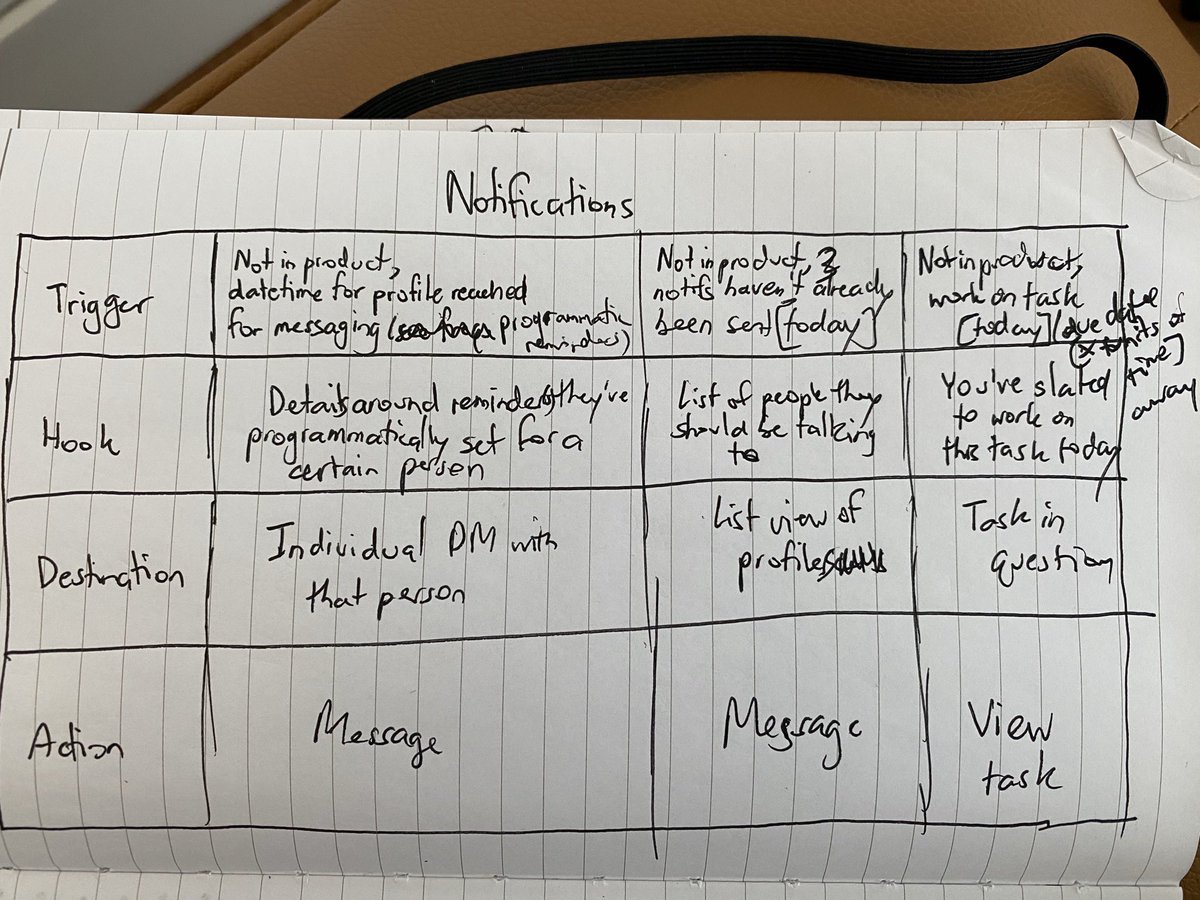 Notifications
Trigger
Not in product,
datetime for profile reached
for messaging ( programmatic
reminders)
Not in product, 3
notifs haven't already
been sent [today]
Not in product,
work on task
[today] (due date
[x units of
time]
away
Hook
Details around reminders they've
programmatically set for a
certain person
List of people they
should be talking
to
You've slated
to work on
this task today
Destination
Individual DM with
that person
List view of
profiles
Task in
question
Action
Message
Message
View
task